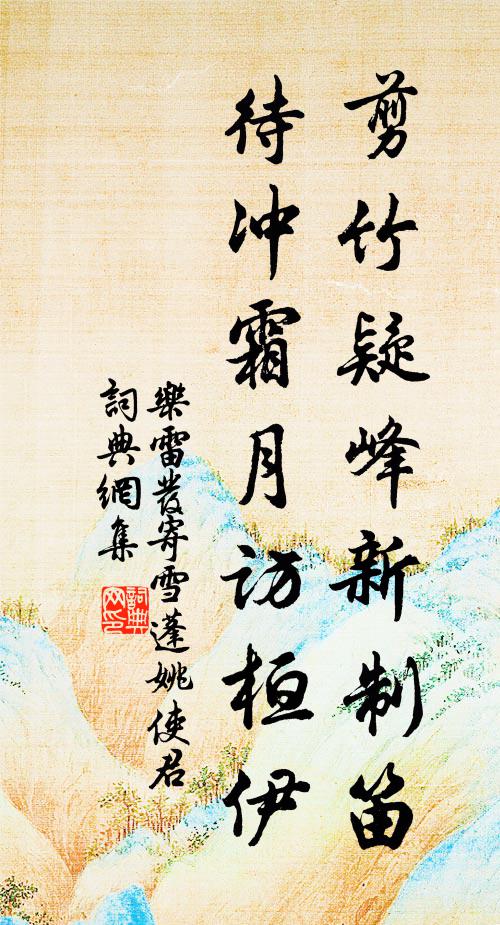 剪竹疑峰新制笛
待冲霜月访桓伊
樂雷發寄雪蓬姚使君
詞典網集
詞典网印